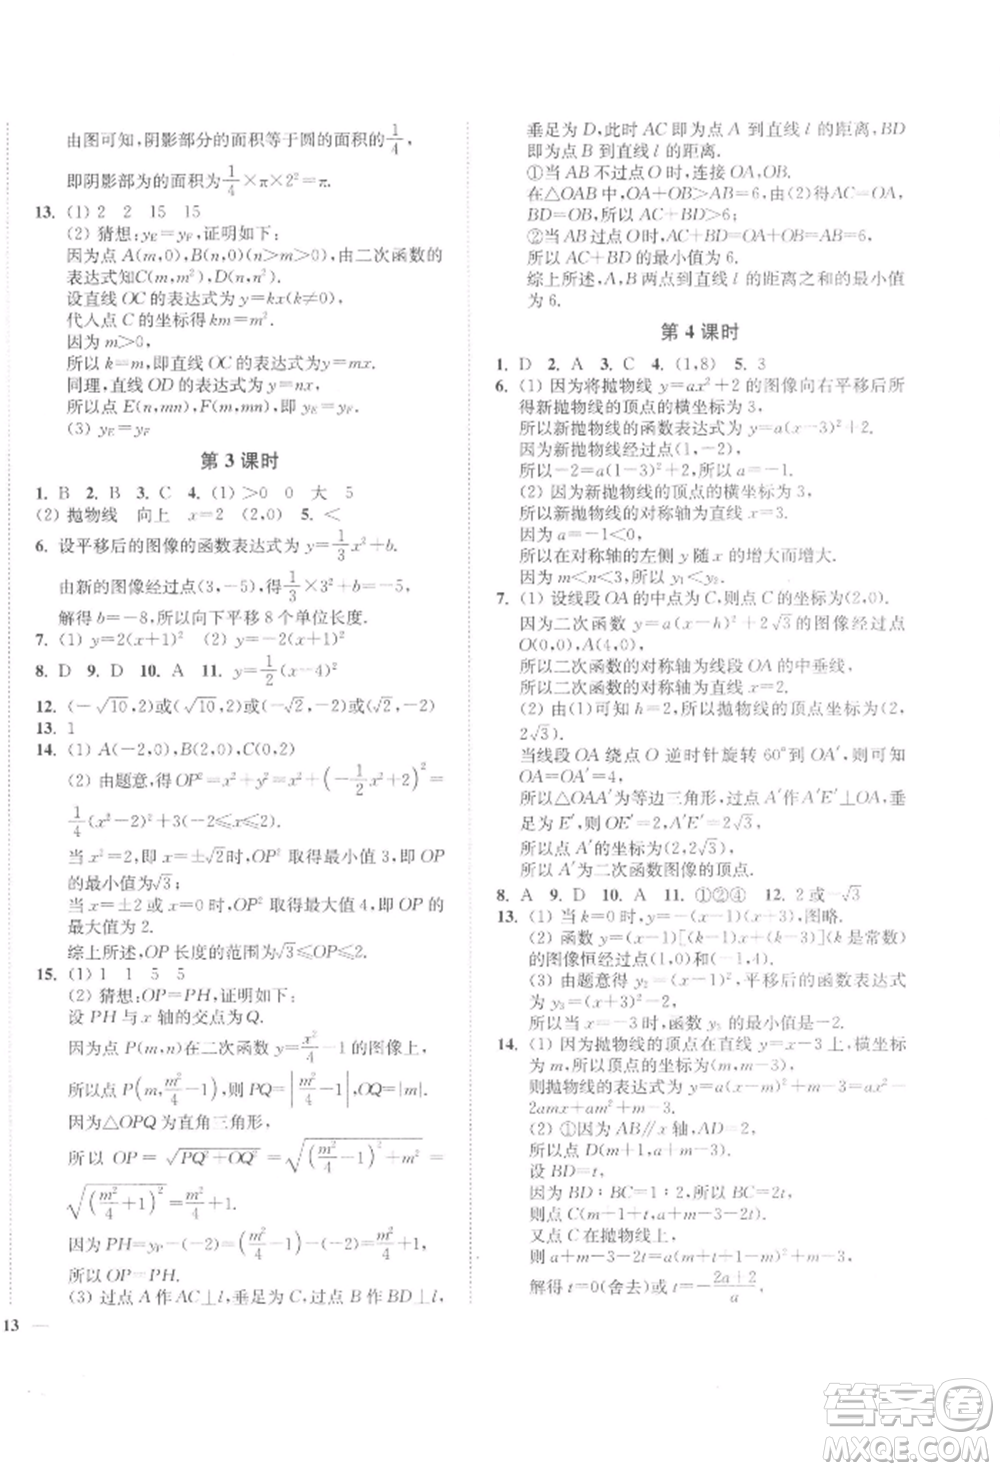 由图可知,阴影部分的面积等于圆的面积的1/4,
即阴影部为的面积为1/4×π×2²=π.
13. (1) 2 2 15 15
(2) 猜想:yE=yF,证明如下:
因为点A(m,0),B(n,0)(n>m>0),由二次函数的
表达式知C(m,m²),D(n,n²).
设直线OC的表达式为y=kx(k≠0),
代人点C的坐标得km=m².
因为m>0,
所以k=m,即直线OC的表达式为y=mx.
同理,直线OD的表达式为y=nx.
所以点E(n,mn),F(m,mn),即yE=yF.
(3) yE=yF
第3课时
1. B 2. B 3. C 4. (1)>0 0 大 5
(2) 抛物线 向上 x=2 (2,0) 5. <
6. 设平移后的图像的函数表达式为y=1/3x²+b.
由新的图像经过点(3,-5),得1/3×3²+b=-5,
解得b=-8,所以向下平移8个单位长度.
7. (1) y=2(x+1)² (2) y=-2(x+1)²
8. D 9. D 10. A 11. y=1/2(x-4)²
12. (-√10,2)或(√10,2)或(-√2,-2)或(√2,-2)
13. 1
14. (1) A(-2,0),B(2,0),C(0,2)
(2) 由题意,得OP²=x²+y²=x²+(-1/2x²+2)²=
1/4(x²-2)²+3(-2≤x≤2).
当x²=2,即x=±√2时,OP²取得最小值3,即OP
的最小值为√3;
当x=±2或x=0时,OP²取得最大值4,即OP的
最大值为2.
综上所述,OP长度的范围为√3≤OP≤2.
15. (1) 1 1 5 5
(2) 猜想:OP=PH,证明如下:
设PH与x轴的交点为Q.
因为点P(m,n)在二次函数y=x²/4-1的图像上,
所以点P(m,m²/4-1),则PQ=|m²/4-1|,OQ=|m|.
因为△OPQ为直角三角形,
所以OP=√(PQ²+OQ²)=√((m²/4-1)²+m²)=
√((m²/4+1)²)=m²/4+1.
因为PH=yP-(-2)=(m²/4-1)-(-2)=m²/4+1,
所以OP=PH.
(3) 过点A作AC⊥l,垂足为C,过点B作BD⊥l,
13
垂足为D,此时AC即为点A到直线l的距离,BD
即为点B到直线l的距离.
①当AB不过点O时,连接OA,OB.
在△OAB中,OA+OB>AB=6,由(2)得AC=OA,
BD=OB,所以AC+BD>6;
②当AB过点O时,AC+BD=OA+OB=AB=6,
所以AC+BD的最小值为6.
综上所述,A、B两点到直线l的距离之和的最小值
为6.
第4课时
1. D 2. A 3. C 4. (1,8) 5. 3
6. (1) 因为将抛物线y=ax²+2的图像向右平移后所
得新抛物线的顶点的横坐标为3,
所以新抛物线的函数表达式为y=a(x-3)²+2.
因为新抛物线经过点(1,-2),
所以-2=a(1-3)²+2,解得a=-1.
(2) 因为新抛物线的顶点的横坐标为3,
所以新抛物线的对称轴为直线x=3.
因为a=-1<0,
所以在对称轴的左侧y随x的增大而增大.
因为m<n<3,所以y₁<y₂.
7. (1) 设线段OA的中点为C,则点C的坐标为(2,0).
因为二次函数y=a(x-h)²+2√3的图像经过点
O(0,0),A(4,0),
所以二次函数的对称轴为线段OA的中垂线,
所以二次函数的对称轴为直线x=2.
(2) 由(1)可知h=2,所以抛物线的顶点坐标为(2,
2√3).
当线段OA绕点O逆时针旋转60°到OA′,可知
OA=OA′=4,
所以△OAA′为等边三角形,过点A′作A′E′⊥OA,垂
足为E′,则OE′=2,A′E′=2√3,
所以点A′的坐标为(2,2√3),
所以A′为二次函数图像的顶点.
8. A 9. D 10. A 11. ①②④ 12. 2或-√3
13. (1) 当k=0时,y=-(x-1)(x-3),图略.
(2) 函数y=(x-1)[(k-1)x-(k-3)](k是常数)
的图像恒经过点(1,0)和(-1,6).
(3) 由题意得y₂=-(x-1)²,平移后的函数表达式
为y₃=(x+3)²-2,
所以当x=-3时,函数y₃的最小值是-2.
14. (1) 因为抛物线的顶点在直线y=x-3上,横坐标
为m,所以顶点的坐标为(m,m-3),
则抛物线的表达式为y=a(x-m)²+m-3=ax²-
2amx+am²+m-3.
(2) ①因为AB∥x轴,AD=2,
所以点D(m,a+m-3).
设BD=t,
因为BD∶BC=1∶2,所以BC=2t,
则点C(m+1+t,a+m-3-2t).
又点C在抛物线上,
所以a+m-3-2t=a(m+1+t-m)²+m-3,
解得t=0(舍去)或t=-(2a+2)/a,
答案圈
MXQE.COM